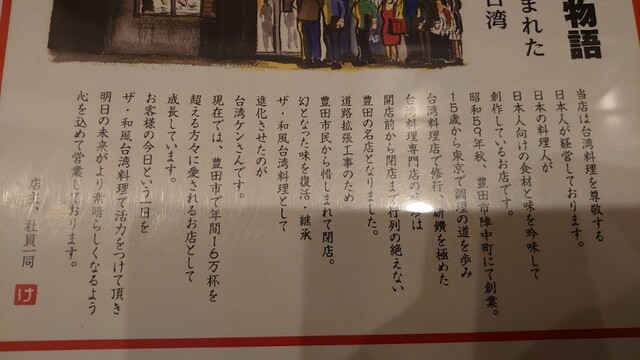 物語
まれた
台湾
当店は台湾料理を尊敬する
日本人が経営しております。
日本の料理人が
日本人向けの食材と味を吟味して
創作しているお店です。
昭和59年秋、豊田市陣中町にて創業。
15歳から東京で調理の道を歩み
台湾料理店で修行、研鑽を極めた
台湾料理専門店の
開店前から閉店まで行列の絶えない
豊田の名店となりました。
道路拡張工事のため
豊田市民から惜しまれて閉店。
幻となった味を復活・継承
ザ・和風台湾料理として
進化させたのが
台湾ケンさんです。
現在では、豊田市で年間16万杯を
超える方々に愛されるお店として
成長しています。
お客様の今日という一日を
ザ・和風台湾料理で活力をつけて頂き
明日の未来がより素晴らしくなるよう
心を込めて営業しております。
店主、社員一同
け